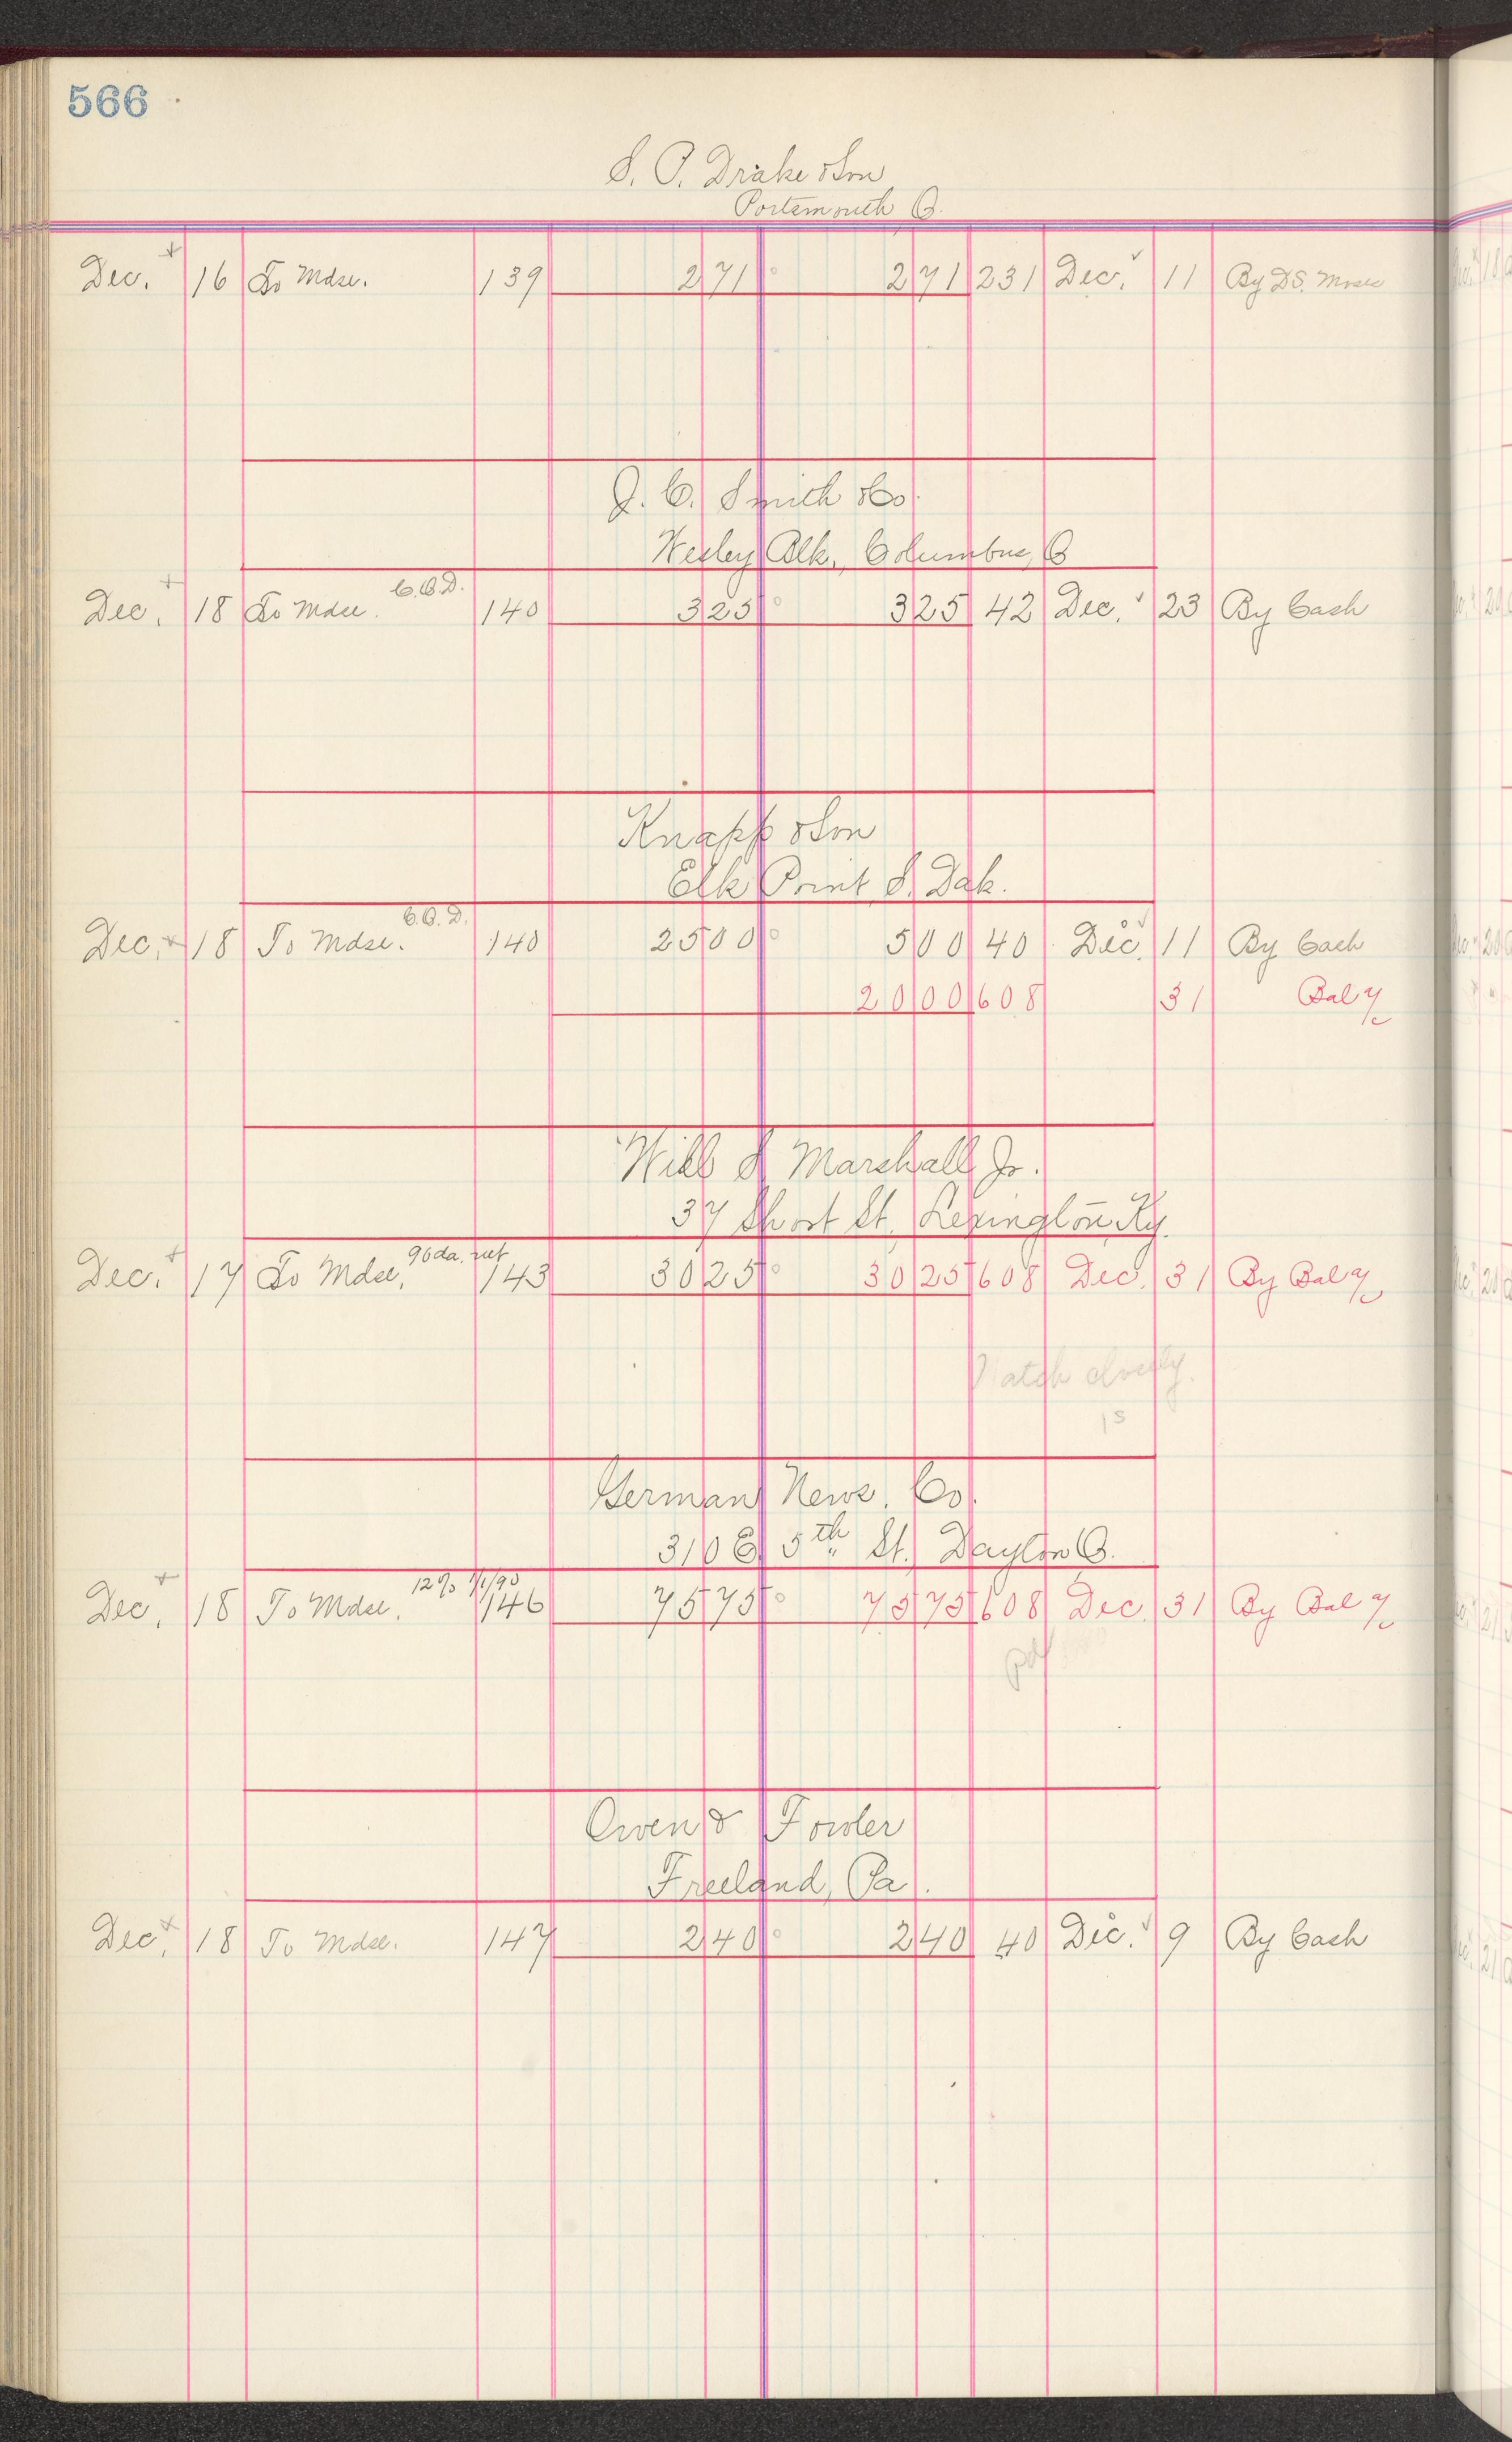 566
S. P. Drake & Son
Portsmouth O.
Dec. 16 To Mdse. 139 271 271 231 Dec. 11 By DS. Mdse
J. C. Smith & Co.
Wesley Blk., Columbus, O
Dec. 18 To Mdse. C.O.D. 140 325 325 42 Dec. 23 By Cash
Knapp & Son
Elk Point, S. Dak.
Dec. 18 To Mdse. C.O.D. 140 2500 500 40 Dec. 11 By Cash
2000 608 31 Bal a/c
Will S. Marshall Jr.
37 Short St., Lexington, Ky.
Dec. 17 To Mdse. 90 da. net 143 3025 3025 608 Dec. 31 By Bal a/c
Watch closely.
German News. Co.
310 E. 5th St. Dayton O.
Dec. 18 To Mdse. 12% 1/1/90 146 7575 7575 608 Dec. 31 By Bal a/c
Pd
Owen & Fowler
Freeland, Pa.
Dec. 18 To Mdse. 147 240 240 40 Dec. 9 By Cash